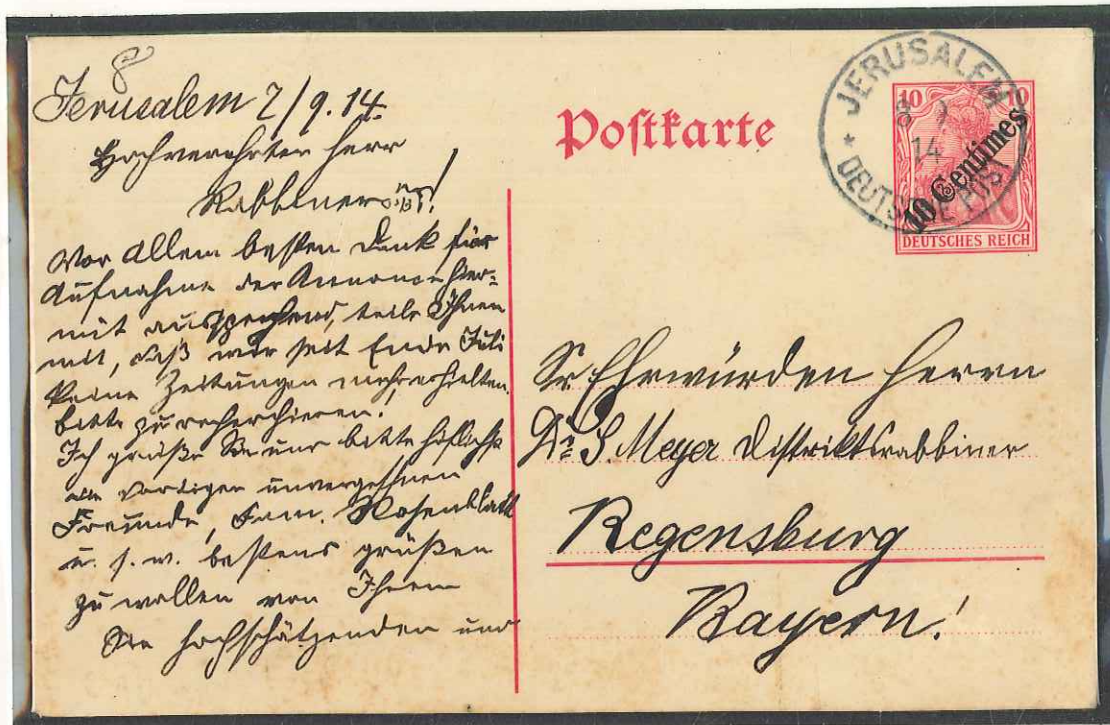 8
Jerusalem 7/9.14.
Hochverehrter Herr
Rabbiner
Vor Allem besten Dank für
Aufnahme der Annonce hier=
mit aussprechend, teile Ihnen
mit, daß wir seit Ende Juli
keine Zeitungen mehr erhielten,
bitte zu recherchieren.
Ich grüße Sie und bitte höflichst
alle dortigen unvergeßnen
Freunde, Fam. Rosenblatt
u. s. w. bestens grüßen
zu wollen von Ihrem
Sie hochschätzenden und
Postkarte
JERUSALEM
14
DEUTSCHE POST
10 10
10 Centimes
DEUTSCHES REICH
Sr Ehrwürden Herrn
Dr S. Meyer Distriktsrabbiner
Regensburg
Bayern!